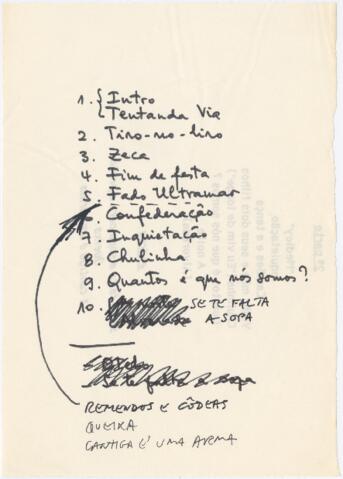 1. { Intro
Tentanda Via
2. Tiro-no-liro
3. Zeca
4. Fim de festa
5. Fado Ultramar
6. Confederação
7. Inquietação
8. Chulinha
9. Quantos é que nós somos?
10. SE TE FALTA
A SOPA
REMENDOS E CÔDEAS
QUEIXA
CANTIGA É UMA ARMA